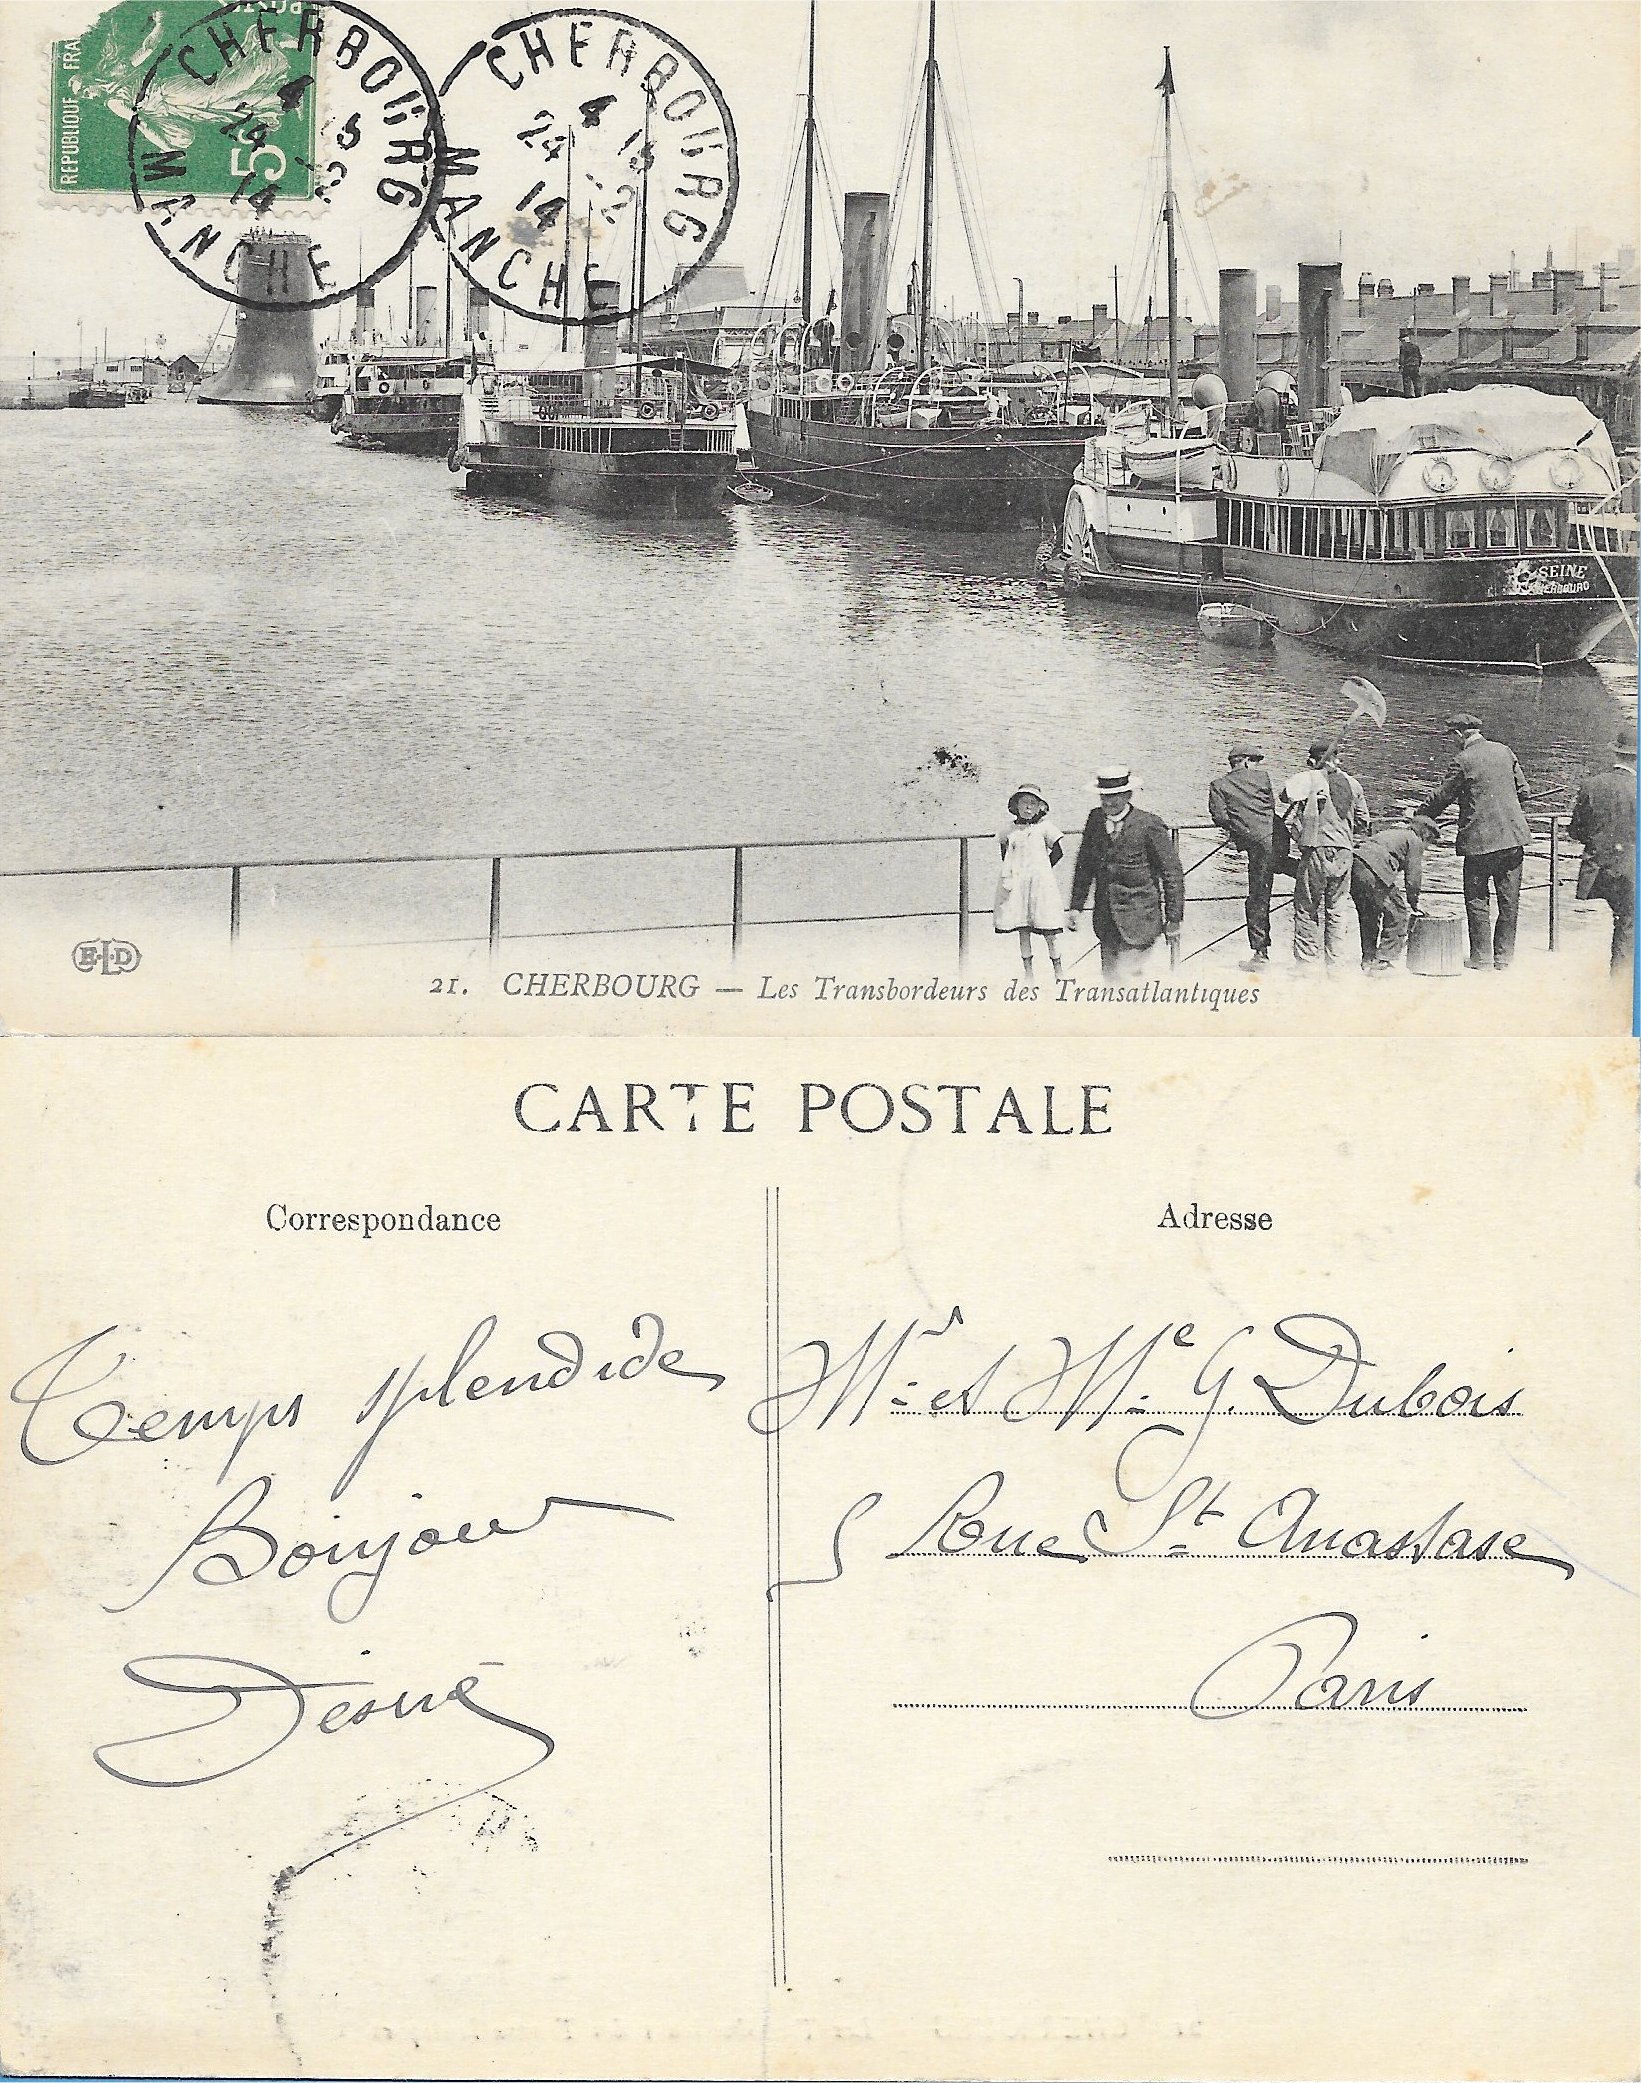 REPUBLIQUE FRA
POSTES
5c
CHERBOURG
4 15
24 -2
14
MANCHE
CHERBOURG
4 15
24 -2
14
MANCHE
SEINE
CHERBOURG
E.L.D
21. CHERBOURG — Les Transbordeurs des Transatlantiques
CARTE POSTALE
Correspondance
Adresse
Temps splendide
Bonjour
Désiré
Mr et Me G. Dubois
5 Rue St Anastase
Paris